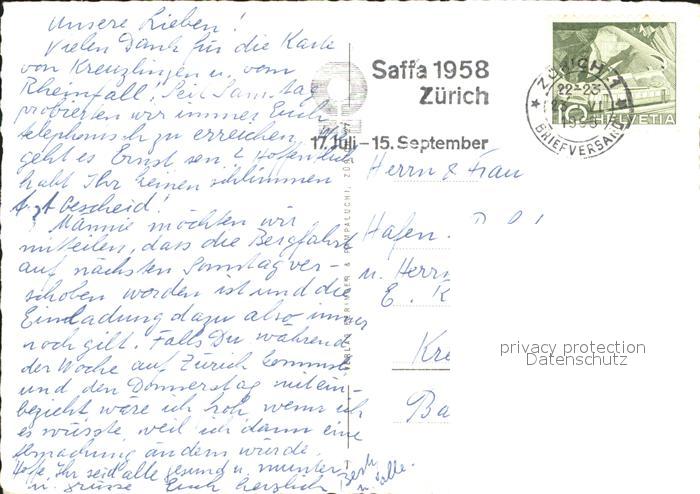 Unsere Lieben!
Vielen Dank für die Karte
von Kreuzlingen u. vom
Rheinfall! Seit Samstag
probierten wir immer Euch
telephonisch zu erreichen. Wie
geht es Ernst sen.? Hoffentlich
habt Ihr keinen schlimmen
Arzt bescheid!
Mannie möchten wir
mitteilen, dass die Bergfahrt
auf nächsten Sonntag ver-
schoben worden ist und die
Einladung dazu also immer
noch gilt. Falls Du während
der Woche auf Zürich kommst
und den Donnerstag mitein-
beziehst wäre ich froh, wenn ich
es wüsste, weil ich dann eine
Abmachung ändern würde.
Hoffe, Ihr seid alle gesund u. munter
u. grüsse Euch herzlich
Saffa 1958
Zürich
17. Juli - 15. September
ZÜRICH 1
22-23
BRIEFVERSAND
10 HELVETIA
Herrn & Frau
Hafen
u. Herrn
E. K
Kre
Ba
privacy protection
Datenschutz